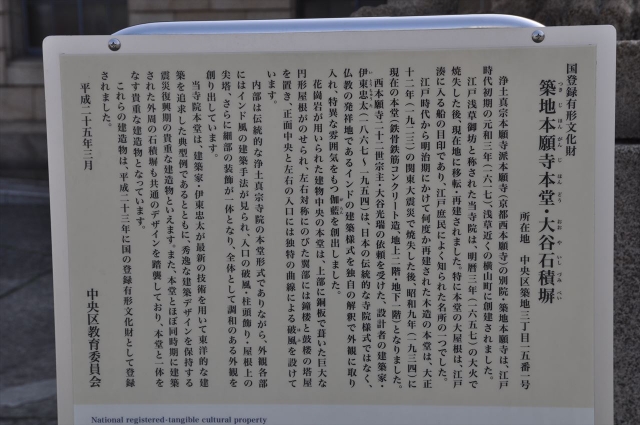 国登録有形文化財
築地本願寺本堂・大谷石積塀
つきじほんがんじほんどう おおやいしづみべい
所在地 中央区築地三丁目一五番一号
浄土真宗本願寺派本願寺（京都西本願寺）の別院・築地本願寺は、江戸
時代初期の元和三年（一六一七）、浅草近くの横山町に創建されました。
江戸浅草御坊と称された当寺院は、明暦三年（一六五七）の大火で
焼失した後、現在地に移転・再建されました。特に本堂の大屋根は、江戸
湊に入る船の目印であり、江戸庶民によく知られた名所の一つでした。
江戸時代から明治期にかけて何度か再建された木造の本堂は、大正
十二年（一九二三）の関東大震災で焼失した後、昭和九年（一九三四）に
現在の本堂（鉄骨鉄筋コンクリート造、地上二階・地下一階）となりました。
西本願寺二十二世宗主・大谷光瑞の依頼を受けた、設計者の建築家・
伊東忠太（一八六七～一九五四）は、日本の伝統的な寺院様式ではなく、
仏教の発祥地であるインドの建築様式を独自の解釈で外観に取り
入れ、特異な雰囲気をもつ伽藍を創出しました。
花崗岩が用いられた建物中央の本堂は、上部に銅板で葺いた巨大な
円形屋根がのせられ、左右対称にのびた翼部には鐘楼と鼓楼の塔屋
を置き、正面中央と左右の入口には独特の曲線による破風を設けて
います。
内部は伝統的な浄土真宗寺院の本堂形式でありながら、外観各部
にはインド風の建築手法が見られ、入口の破風・柱頭飾り・屋根上の
尖塔、さらに細部の装飾が一体となり、全体として調和のある外観を
創り出しています。
当寺院本堂は、建築家・伊東忠太が最新の技術を用いて東洋的な建
築を追求した典型例であるとともに、秀逸な建築デザインを保持する
震災復興期の貴重な建造物といえます。また、本堂とほぼ同時期に建築
された外周の石積塀も共通のデザインを踏襲しており、本堂と一体を
なす貴重な建造物となっています。
これらの建造物は、平成二十三年に国の登録有形文化財として登録
されました。
平成二十五年三月
中央区教育委員会
National registered-tangible cultural property